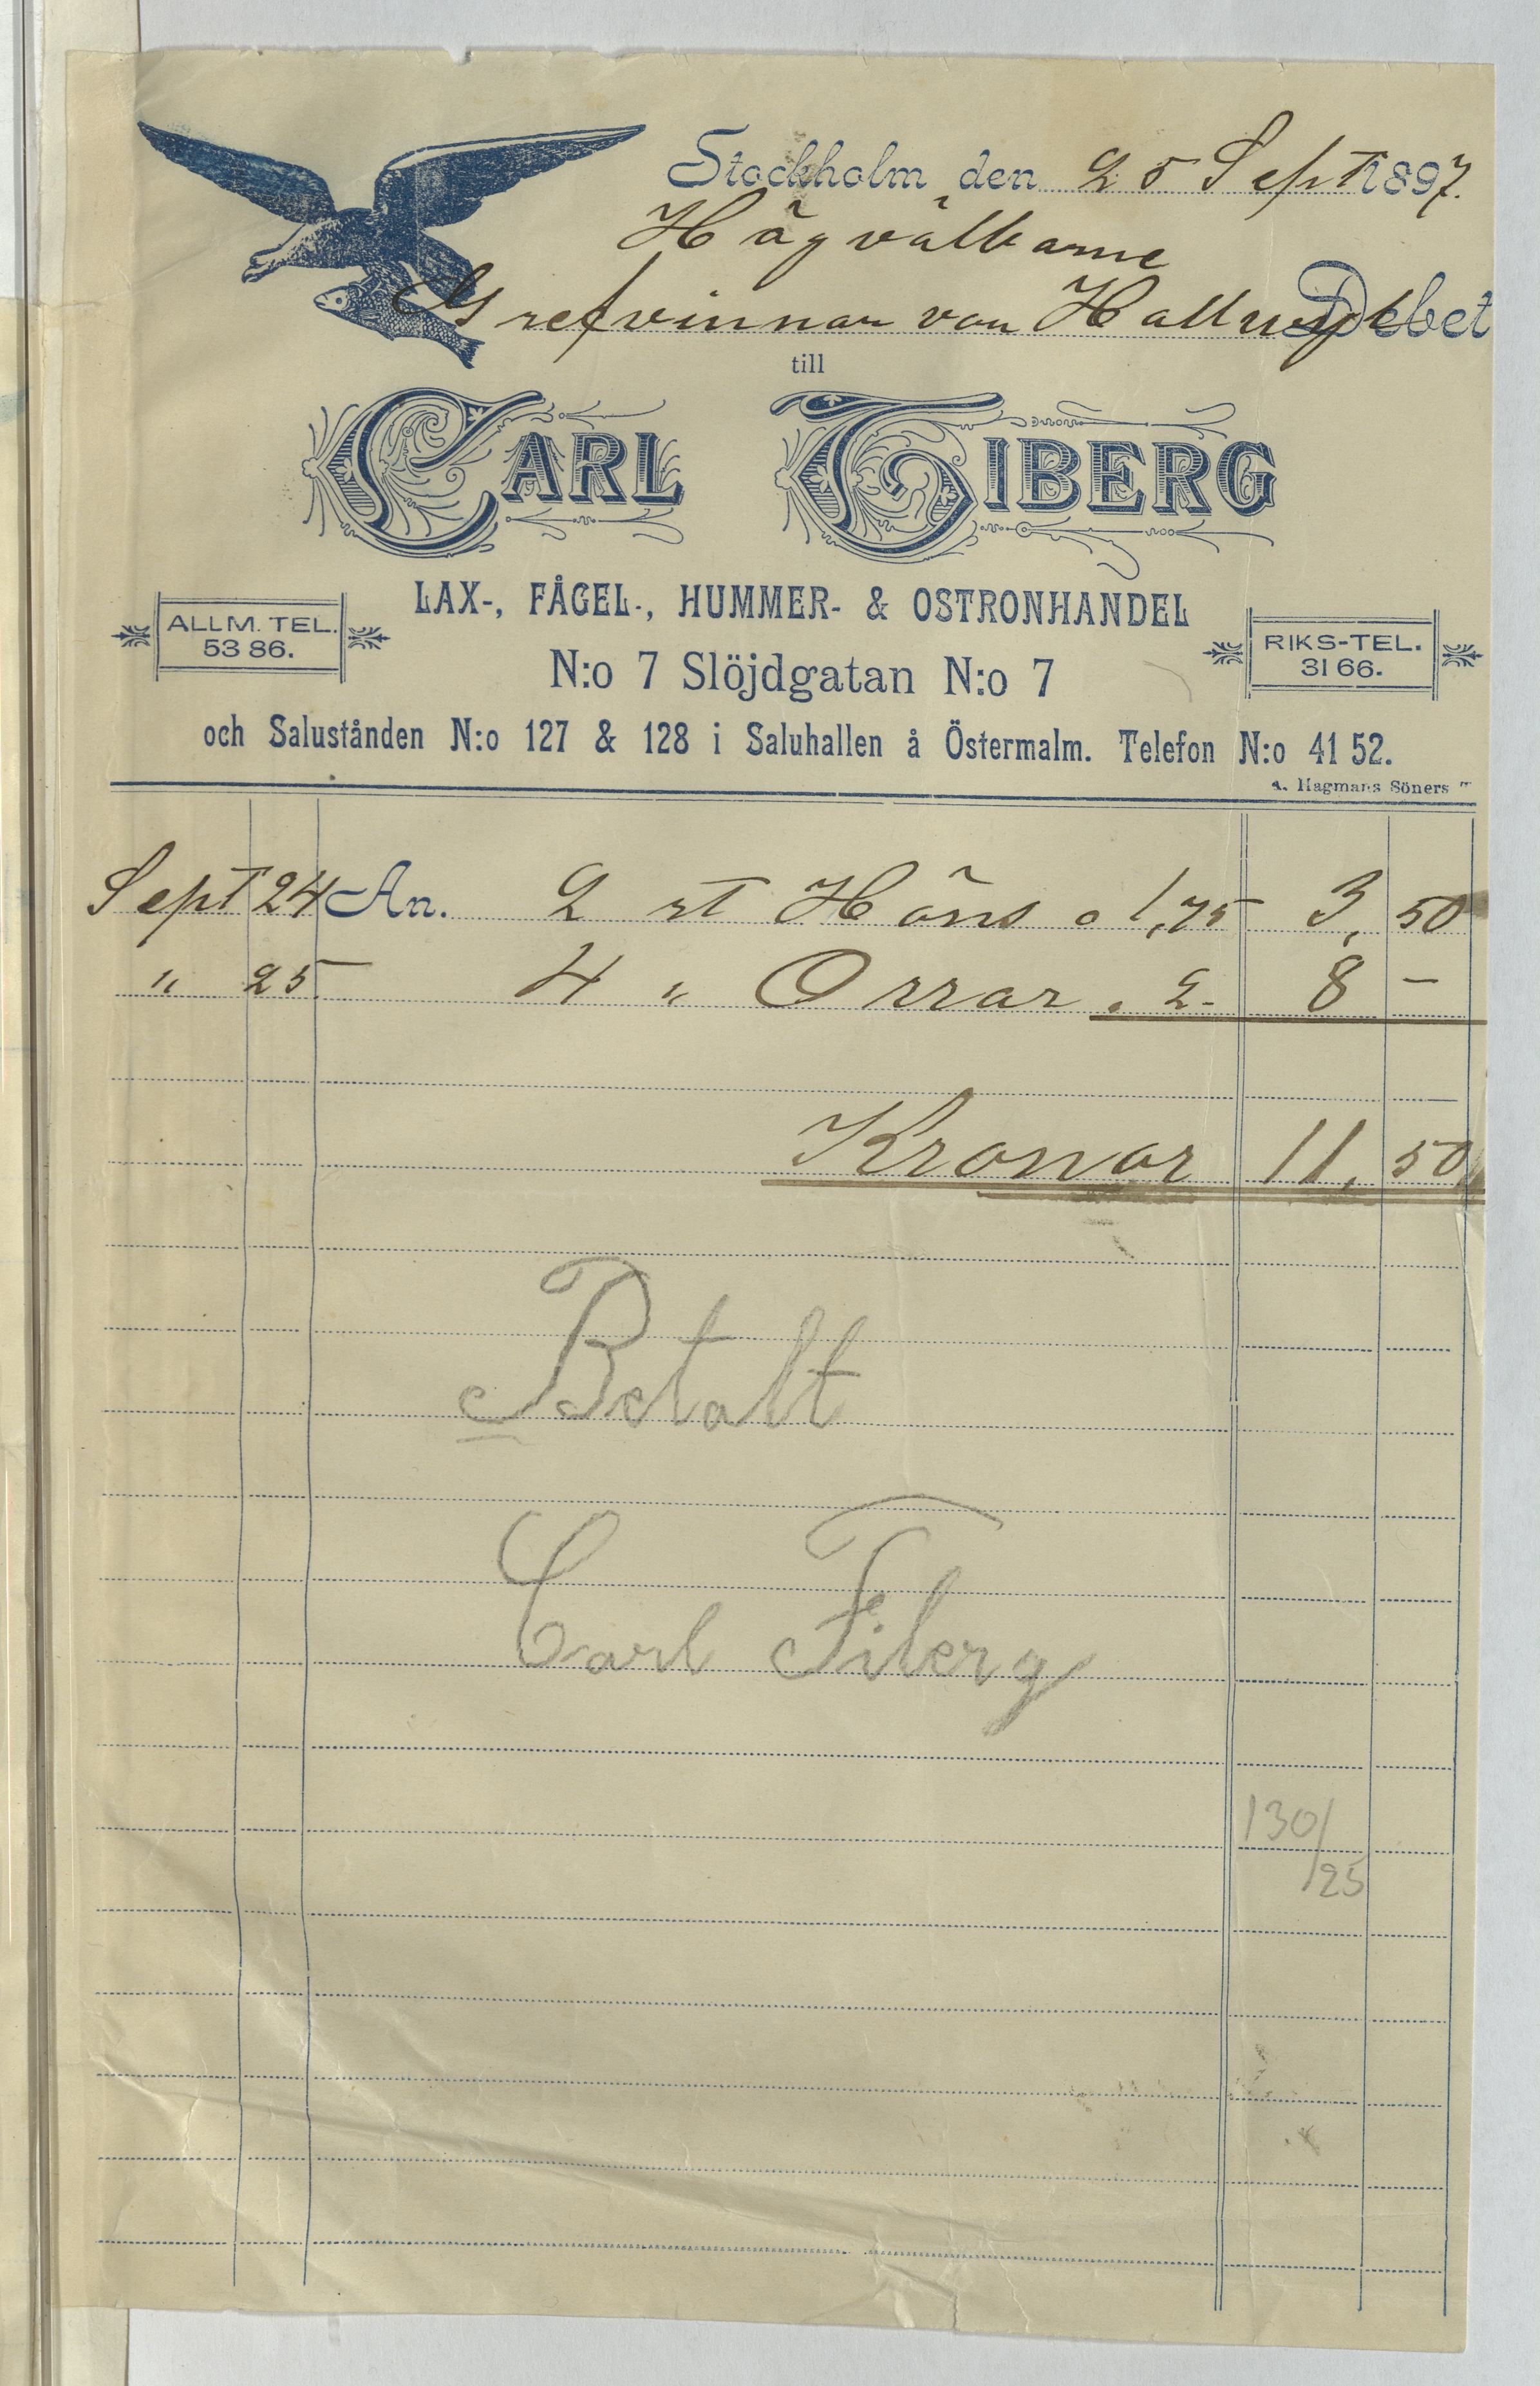 Stockholm den 25 Sept 1897.
Högvälbarne
Grefvinnar von Hallwyl Debet
till
CARL TIBERG
LAX-, FÅGEL-, HUMMER- & OSTRONHANDEL
ALLM. TEL.
53 86.
RIKS-TEL.
31 66.
N:o 7 Slöjdgatan N:o 7
och Salustånden N:o 127 & 128 i Saluhallen å Östermalm. Telefon N:o 41 52.
Hagmans Söners
Sept 24 An. 2 st Höns a 1,75 3, 50
" 25 4 " Orrar . 2- 8 -
Kronor 11, 50
Betalt
Carl Tiberg
130/
25